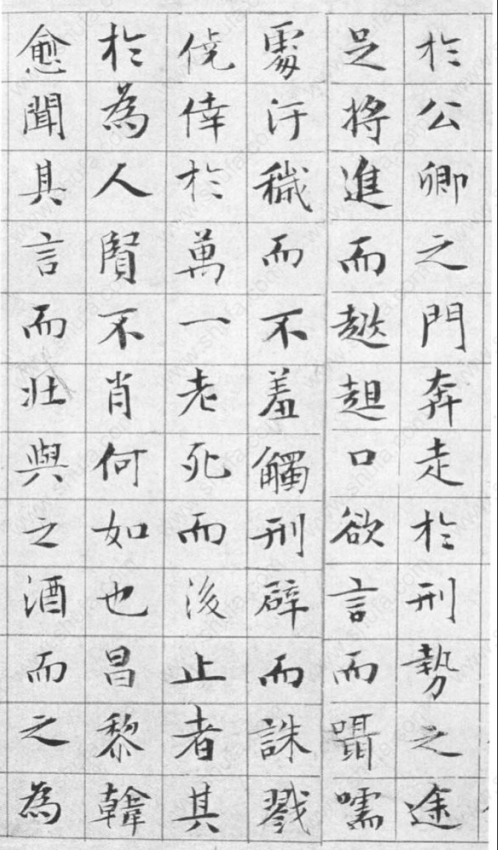 於公卿之門奔走於刑勢之途
足將進而趑趄口欲言而囁嚅
處汙穢而不羞觸刑辟而誅戮
僥倖於萬一老死而後止者其
於為人賢不肖何如也昌黎韓
愈聞其言而壯與之酒而之為